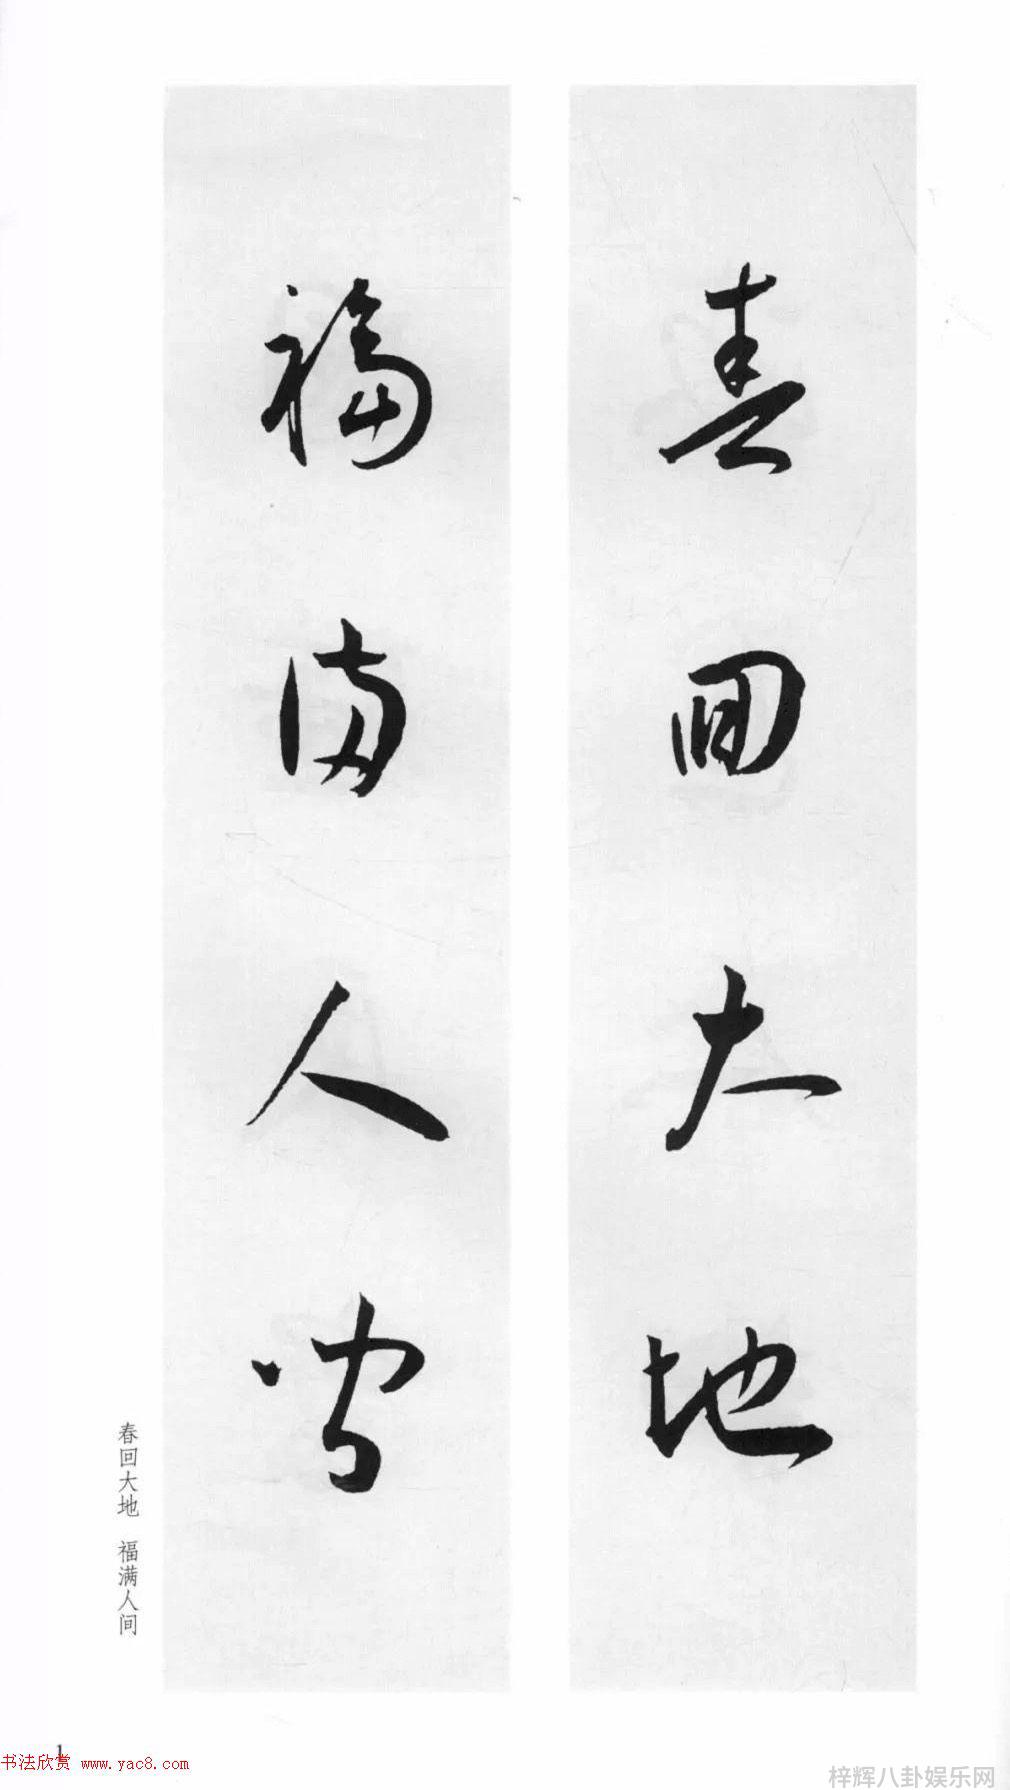 春回大地
福满人间
春回大地 福满人间
1
书法欣赏 www.yac8.com
梓辉八卦娱乐网